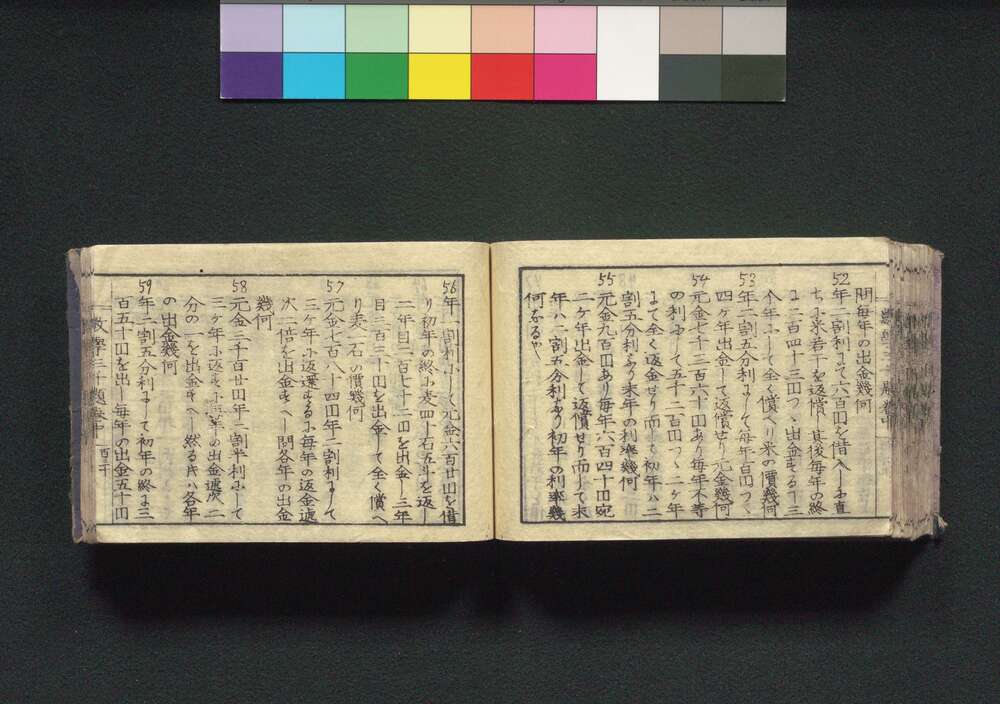 問毎年の出金幾何
52
年二割利にて六百円を借入し直
ちに米若干を返償し其後毎年の終
に二百四十三円つゝ出金する十三
ケ年にして全く償へり米の價幾何
53
年二割五分利にして毎年百円つゝ
四ケ年出金して返償せり元金幾何
54
元金七千三百六十円あり毎年不等
の利にして五千二百円つゝ二ケ年
にて全く返金せり而して初年ハ二
割五分利なり末年の利率幾何
55
元金九百円あり毎年六百四十円宛
二ケ年出金して返償せり而して末
年ハ二割五分利なり初年の利率幾
何なるや
56
年一割利にして元金六百廿円を借
り初年の終に麦四十石五斗を返し
二年目二百七十二円を出金し三年
目三百三十円を出金して全く償へ
り麦一石の價幾何
57
元金七百八十四円年二割利にして
三ケ年に返還するに毎年の返金遞
次一倍を出金すへし問各年の出金
幾何
58
元金二千百廿円年二割半利にして
三ケ年に返すに毎年の出金遞次二
分の一を出金すへし然るときハ各年
の出金幾何
59
年二割五分利にして初年の終に三
百五十円を出し毎年の出金五十円
数學三千題巻中